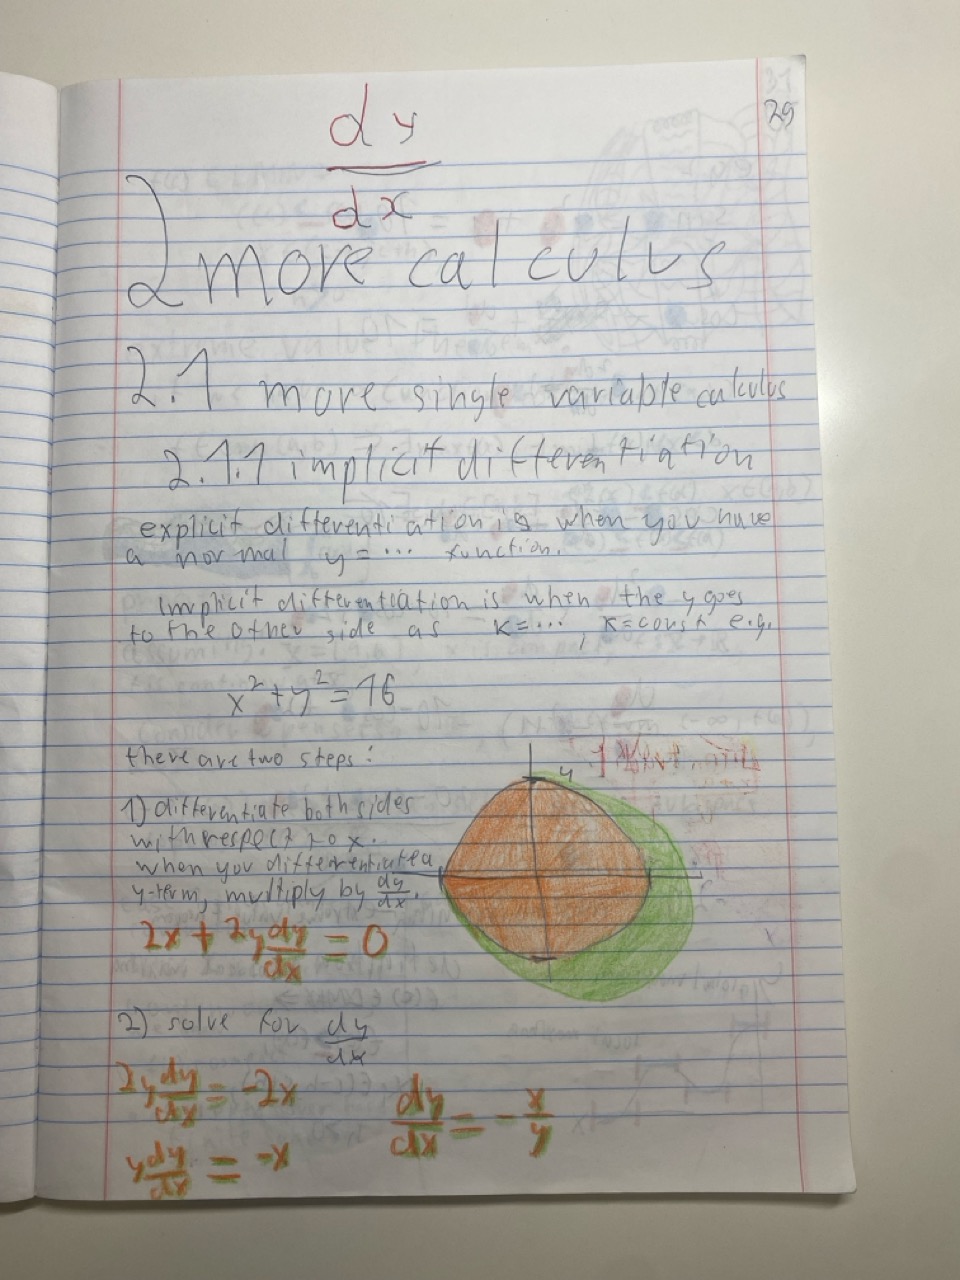 29
dy
dx
2 more calculus
2.1 more single variable calculus
2.1.1 implicit differentiation
explicit differentiation is when you have
a normal y = ... function.
implicit differentiation is when the y goes
to the other side as K = ... , K = const e.g.
x² + y² = 16
there are two steps:
4
1) differentiate both sides
with respect to x.
when you differentiate a
y-term, multiply by dy/dx.
2x + 2y dy/dx = 0
2) solve for dy/dx
2y dy/dx = -2x
dy/dx = - x/y
y dy/dx = -x